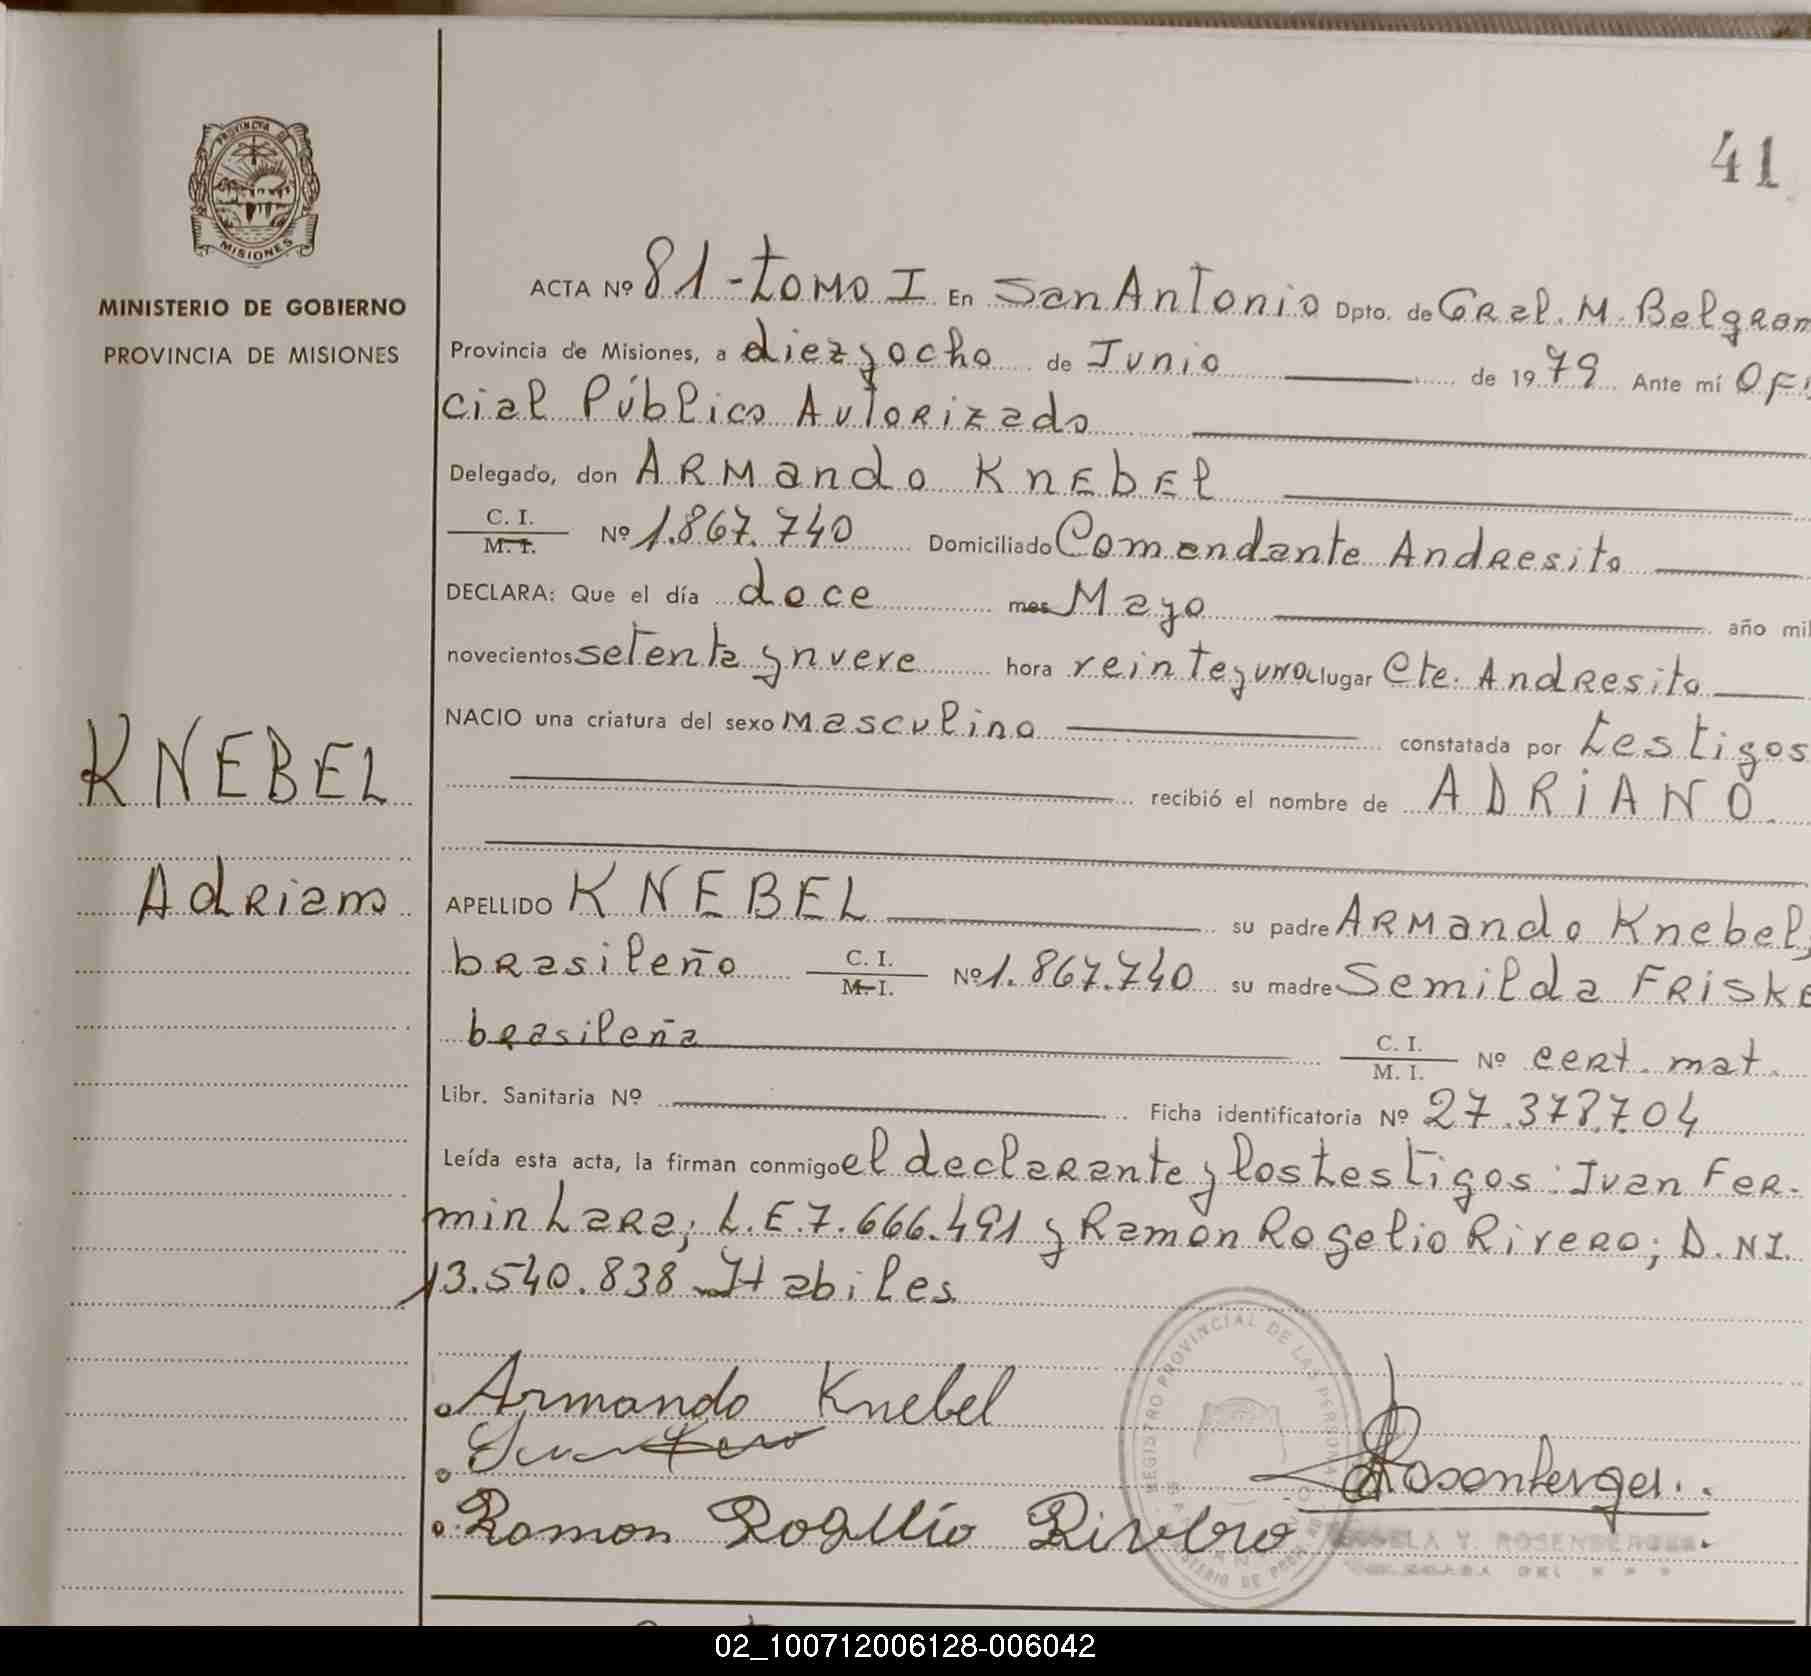 41
PROVINCIA DE
MISIONES
MINISTERIO DE GOBIERNO
PROVINCIA DE MISIONES
KNEBEL
Adriano
ACTA Nº 81 - Tomo I En San Antonio Dpto. de Gral. M. Belgran
Provincia de Misiones, a diez y ocho de Junio de 1979 Ante mí Ofi
cial Público Autorizado
Delegado, don ARMando KnEbEl
C. I.
M. I. Nº 1.867.740 Domiciliado Comandante Andresito
DECLARA: Que el día doce mes Mayo año mil
novecientos setenta y nueve hora veinte y una lugar Cte. Andresito
NACIO una criatura del sexo Masculino constatada por testigos
recibió el nombre de ADRiANO
APELLIDO KNEBEL su padre ARMando Knebel,
brasileño C. I.
M. I. Nº 1.867.740 su madre Semilda Friske
brasileña C. I.
M. I. Nº cert. mat.
Libr. Sanitaria Nº Ficha identificatoria Nº 27.378.704
Leída esta acta, la firman conmigo el declarante y los testigos: Juan Fer-
min Lara; L.E.7.666.491 y Ramón Rogelio Rivero; D.NI.
13.540.838 Habiles
Armando Knebel
Ramon Rogelio Rivero
Rosenberger
REGISTRO PROVINCIAL DE LAS PERSONAS
Y. ROSENBERGER
02_100712006128-006042